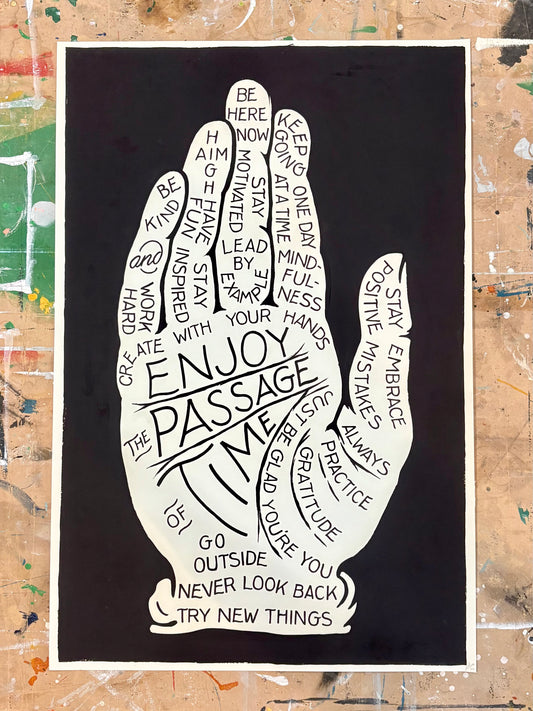 BE
KIND
(and)
WORK
HARD
AIM
HIGH
HAVE
FUN
STAY
INSPIRED
BE
HERE
NOW
STAY
MOTIVATED
LEAD
BY
EXAMPLE
KEEP
GOING
ONE DAY
AT A TIME
MIND-
FUL-
NESS
STAY
POSITIVE
EMBRACE
MISTAKES
CREATE WITH YOUR HANDS
ENJOY
THE
PASSAGE
(OF)
TIME
ALWAYS
PRACTICE
GRATITUDE
JUST BE GLAD YOU'RE YOU
GO
OUTSIDE
NEVER LOOK BACK
TRY NEW THINGS